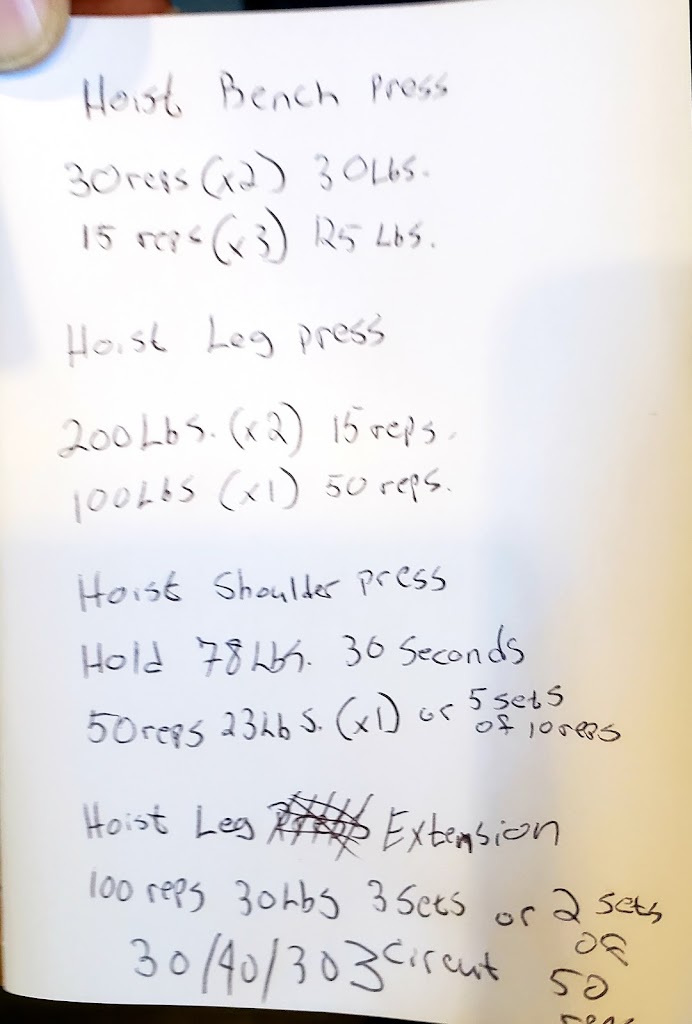 Hoist Bench press
30 reps (x2) 30 Lbs.
15 reps (x3) 125 Lbs.
Hoist Leg press
200 Lbs. (x2) 15 reps.
100 Lbs (x1) 50 reps.
Hoist Shoulder press
Hold 78 Lbs. 30 seconds
50 reps 23 Lbs. (x1) or 5 sets
of 10 reps
Hoist Leg Extension
100 reps 30 Lbs 3 sets or 2 sets
of
30/40/30 3 circuit 50